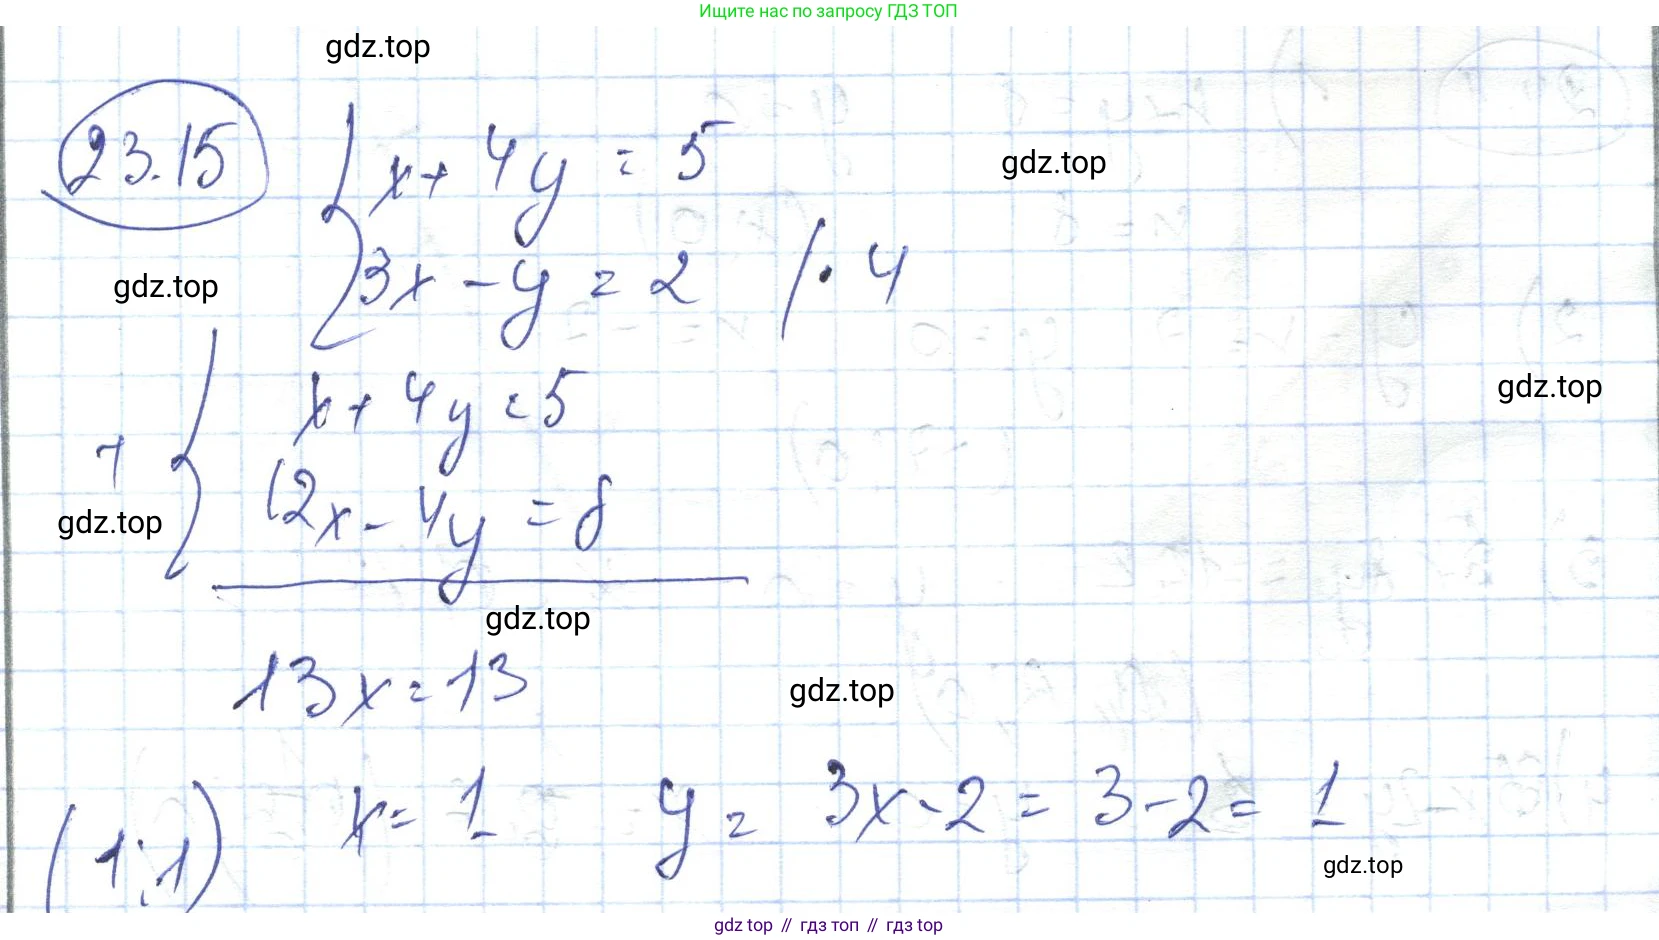 Ищите нас по запросу ГДЗ ТОП
gdz.top
23.15 { x + 4y = 5
gdz.top
3x - y = 2 / · 4
gdz.top
gdz.top
+ { x + 4y = 5
12x - 4y = 8
gdz.top
gdz.top
13x = 13
gdz.top
x = 1 y = 3x - 2 = 3 - 2 = 1
(1; 1)
gdz.top
gdz top // гдз топ // гдз top